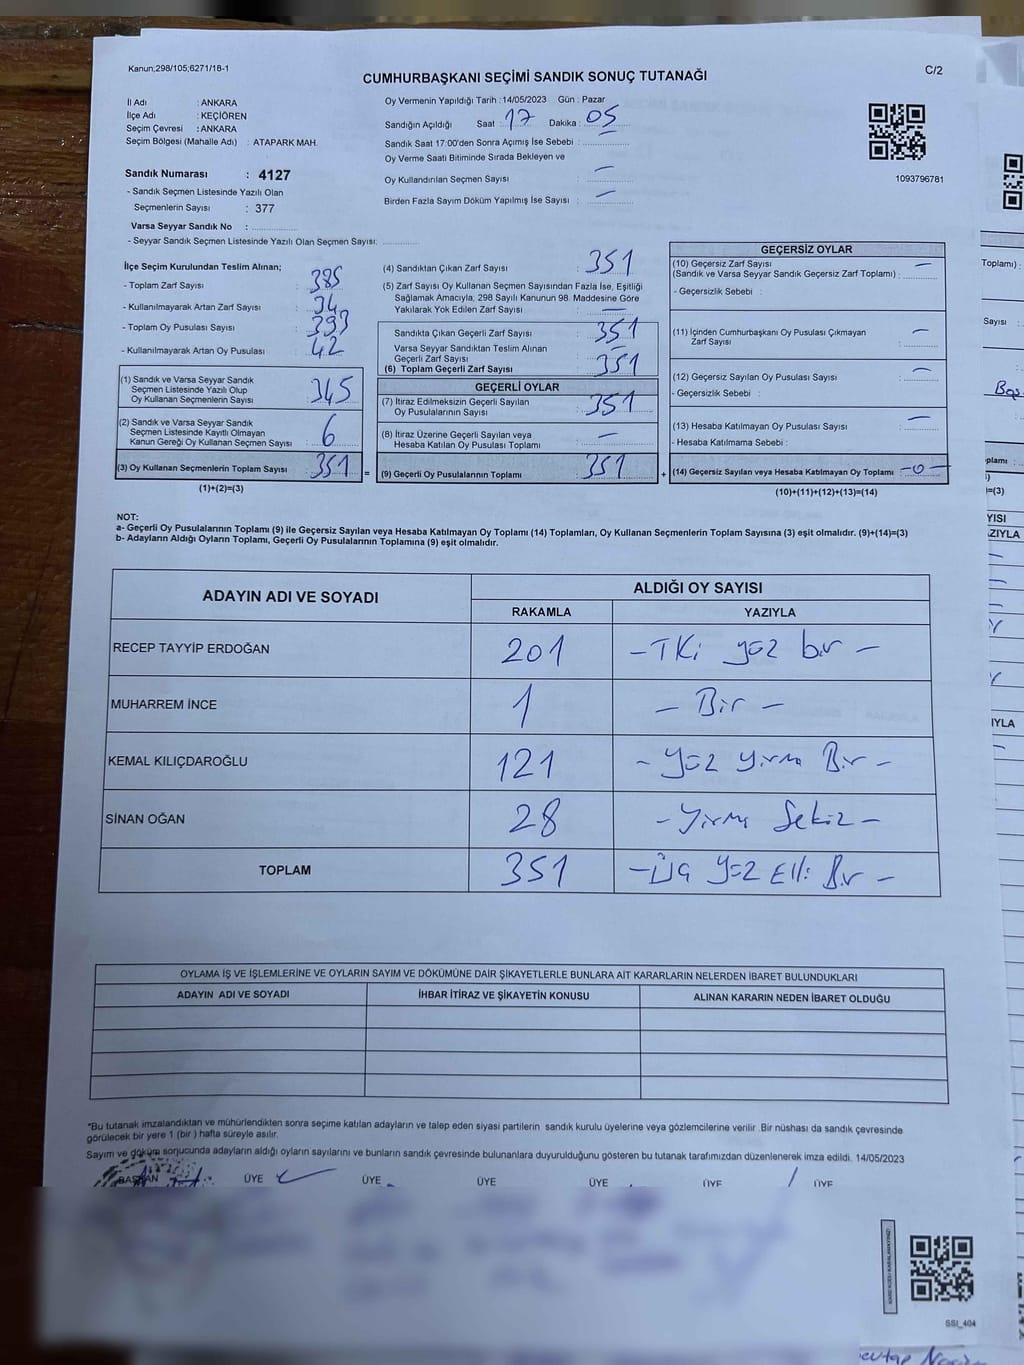 Kanun;298/105;6271/18-1
CUMHURBAŞKANI SEÇİMİ SANDIK SONUÇ TUTANAĞI
C/2
İl Adı : ANKARA
İlçe Adı : KEÇİÖREN
Seçim Çevresi : ANKARA
Seçim Bölgesi (Mahalle Adı) : ATAPARK MAH.
Sandık Numarası : 4127
- Sandık Seçmen Listesinde Yazılı Olan
Seçmenlerin Sayısı : 377
Varsa Seyyar Sandık No :
- Seyyar Sandık Seçmen Listesinde Yazılı Olan Seçmen Sayısı:
Oy Vermenin Yapıldığı Tarih : 14/05/2023 Gün : Pazar
Sandığın Açıldığı Saat : 17 Dakika : 05
Sandık Saat 17:00'den Sonra Açımış İse Sebebi :
Oy Verme Saati Bitiminde Sırada Bekleyen ve
Oy Kullandırılan Seçmen Sayısı : —
Birden Fazla Sayım Döküm Yapılmış İse Sayısı : —
1093796781
İlçe Seçim Kurulundan Teslim Alınan;
- Toplam Zarf Sayısı : 385
- Kullanılmayarak Artan Zarf Sayısı : 34
- Toplam Oy Pusulası Sayısı : 393
- Kullanılmayarak Artan Oy Pusulası : 42
(1) Sandık ve Varsa Seyyar Sandık
Seçmen Listesinde Yazılı Olup
Oy Kullanan Seçmenlerin Sayısı : 345
(2) Sandık ve Varsa Seyyar Sandık
Seçmen Listesinde Kayıtlı Olmayan
Kanun Gereği Oy Kullanan Seçmen Sayısı : 6
(3) Oy Kullanan Seçmenlerin Toplam Sayısı : 351 =
(1)+(2)=(3)
(4) Sandıktan Çıkan Zarf Sayısı : 351
(5) Zarf Sayısı Oy Kullanan Seçmen Sayısından Fazla İse, Eşitliği
Sağlamak Amacıyla; 298 Sayılı Kanunun 98. Maddesine Göre
Yakılarak Yok Edilen Zarf Sayısı : —
Sandıkta Çıkan Geçerli Zarf Sayısı : 351
Varsa Seyyar Sandıktan Teslim Alınan
Geçerli Zarf Sayısı : —
(6) Toplam Geçerli Zarf Sayısı : 351
GEÇERLİ OYLAR
(7) İtiraz Edilmeksizin Geçerli Sayılan
Oy Pusulalarının Sayısı : 351
(8) İtiraz Üzerine Geçerli Sayılan veya
Hesaba Katılan Oy Pusulası Toplamı : —
(9) Geçerli Oy Pusulalarının Toplamı : 351 +
GEÇERSİZ OYLAR
(10) Geçersiz Zarf Sayısı
(Sandık ve Varsa Seyyar Sandık Geçersiz Zarf Toplamı) : —
- Geçersizlik Sebebi :
(11) İçinden Cumhurbaşkanı Oy Pusulası Çıkmayan
Zarf Sayısı : —
(12) Geçersiz Sayılan Oy Pusulası Sayısı : —
- Geçersizlik Sebebi :
(13) Hesaba Katılmayan Oy Pusulası Sayısı : —
- Hesaba Katılmama Sebebi :
(14) Geçersiz Sayılan veya Hesaba Katılmayan Oy Toplamı : -0-
(10)+(11)+(12)+(13)=(14)
NOT:
a- Geçerli Oy Pusulalarının Toplamı (9) ile Geçersiz Sayılan veya Hesaba Katılmayan Oy Toplamı (14) Toplamları, Oy Kullanan Seçmenlerin Toplam Sayısına (3) eşit olmalıdır. (9)+(14)=(3)
b- Adayların Aldığı Oyların Toplamı, Geçerli Oy Pusulalarının Toplamına (9) eşit olmalıdır.
ADAYIN ADI VE SOYADI
ALDIĞI OY SAYISI
RAKAMLA YAZIYLA
RECEP TAYYİP ERDOĞAN 201 - İki yüz bir -
MUHARREM İNCE 1 - Bir -
KEMAL KILIÇDAROĞLU 121 - yüz yirmi Bir -
SİNAN OĞAN 28 - Yirmi Sekiz -
TOPLAM 351 - Üç yüz Elli Bir -
OYLAMA İŞ VE İŞLEMLERİNE VE OYLARIN SAYIM VE DÖKÜMÜNE DAİR ŞİKAYETLERLE BUNLARA AİT KARARLARIN NELERDEN İBARET BULUNDUKLARI
ADAYIN ADI VE SOYADI İHBAR İTİRAZ VE ŞİKAYETİN KONUSU ALINAN KARARIN NEDEN İBARET OLDUĞU
*Bu tutanak imzalandıktan ve mühürlendikten sonra seçime katılan adayların ve talep eden siyasi partilerin sandık kurulu üyelerine veya gözlemcilerine verilir .Bir nüshası da sandık çevresinde
görülecek bir yere 1 (bir ) hafta süreyle asılır.
Sayım ve döküm sonucunda adayların aldığı oyların sayılarını ve bunların sandık çevresinde bulunanlara duyurulduğunu gösteren bu tutanak tarafımızdan düzenlenerek imza edildi. 14/05/2023
BAŞKAN ÜYE ÜYE ÜYE ÜYE ÜYE ÜYE
SSI_404